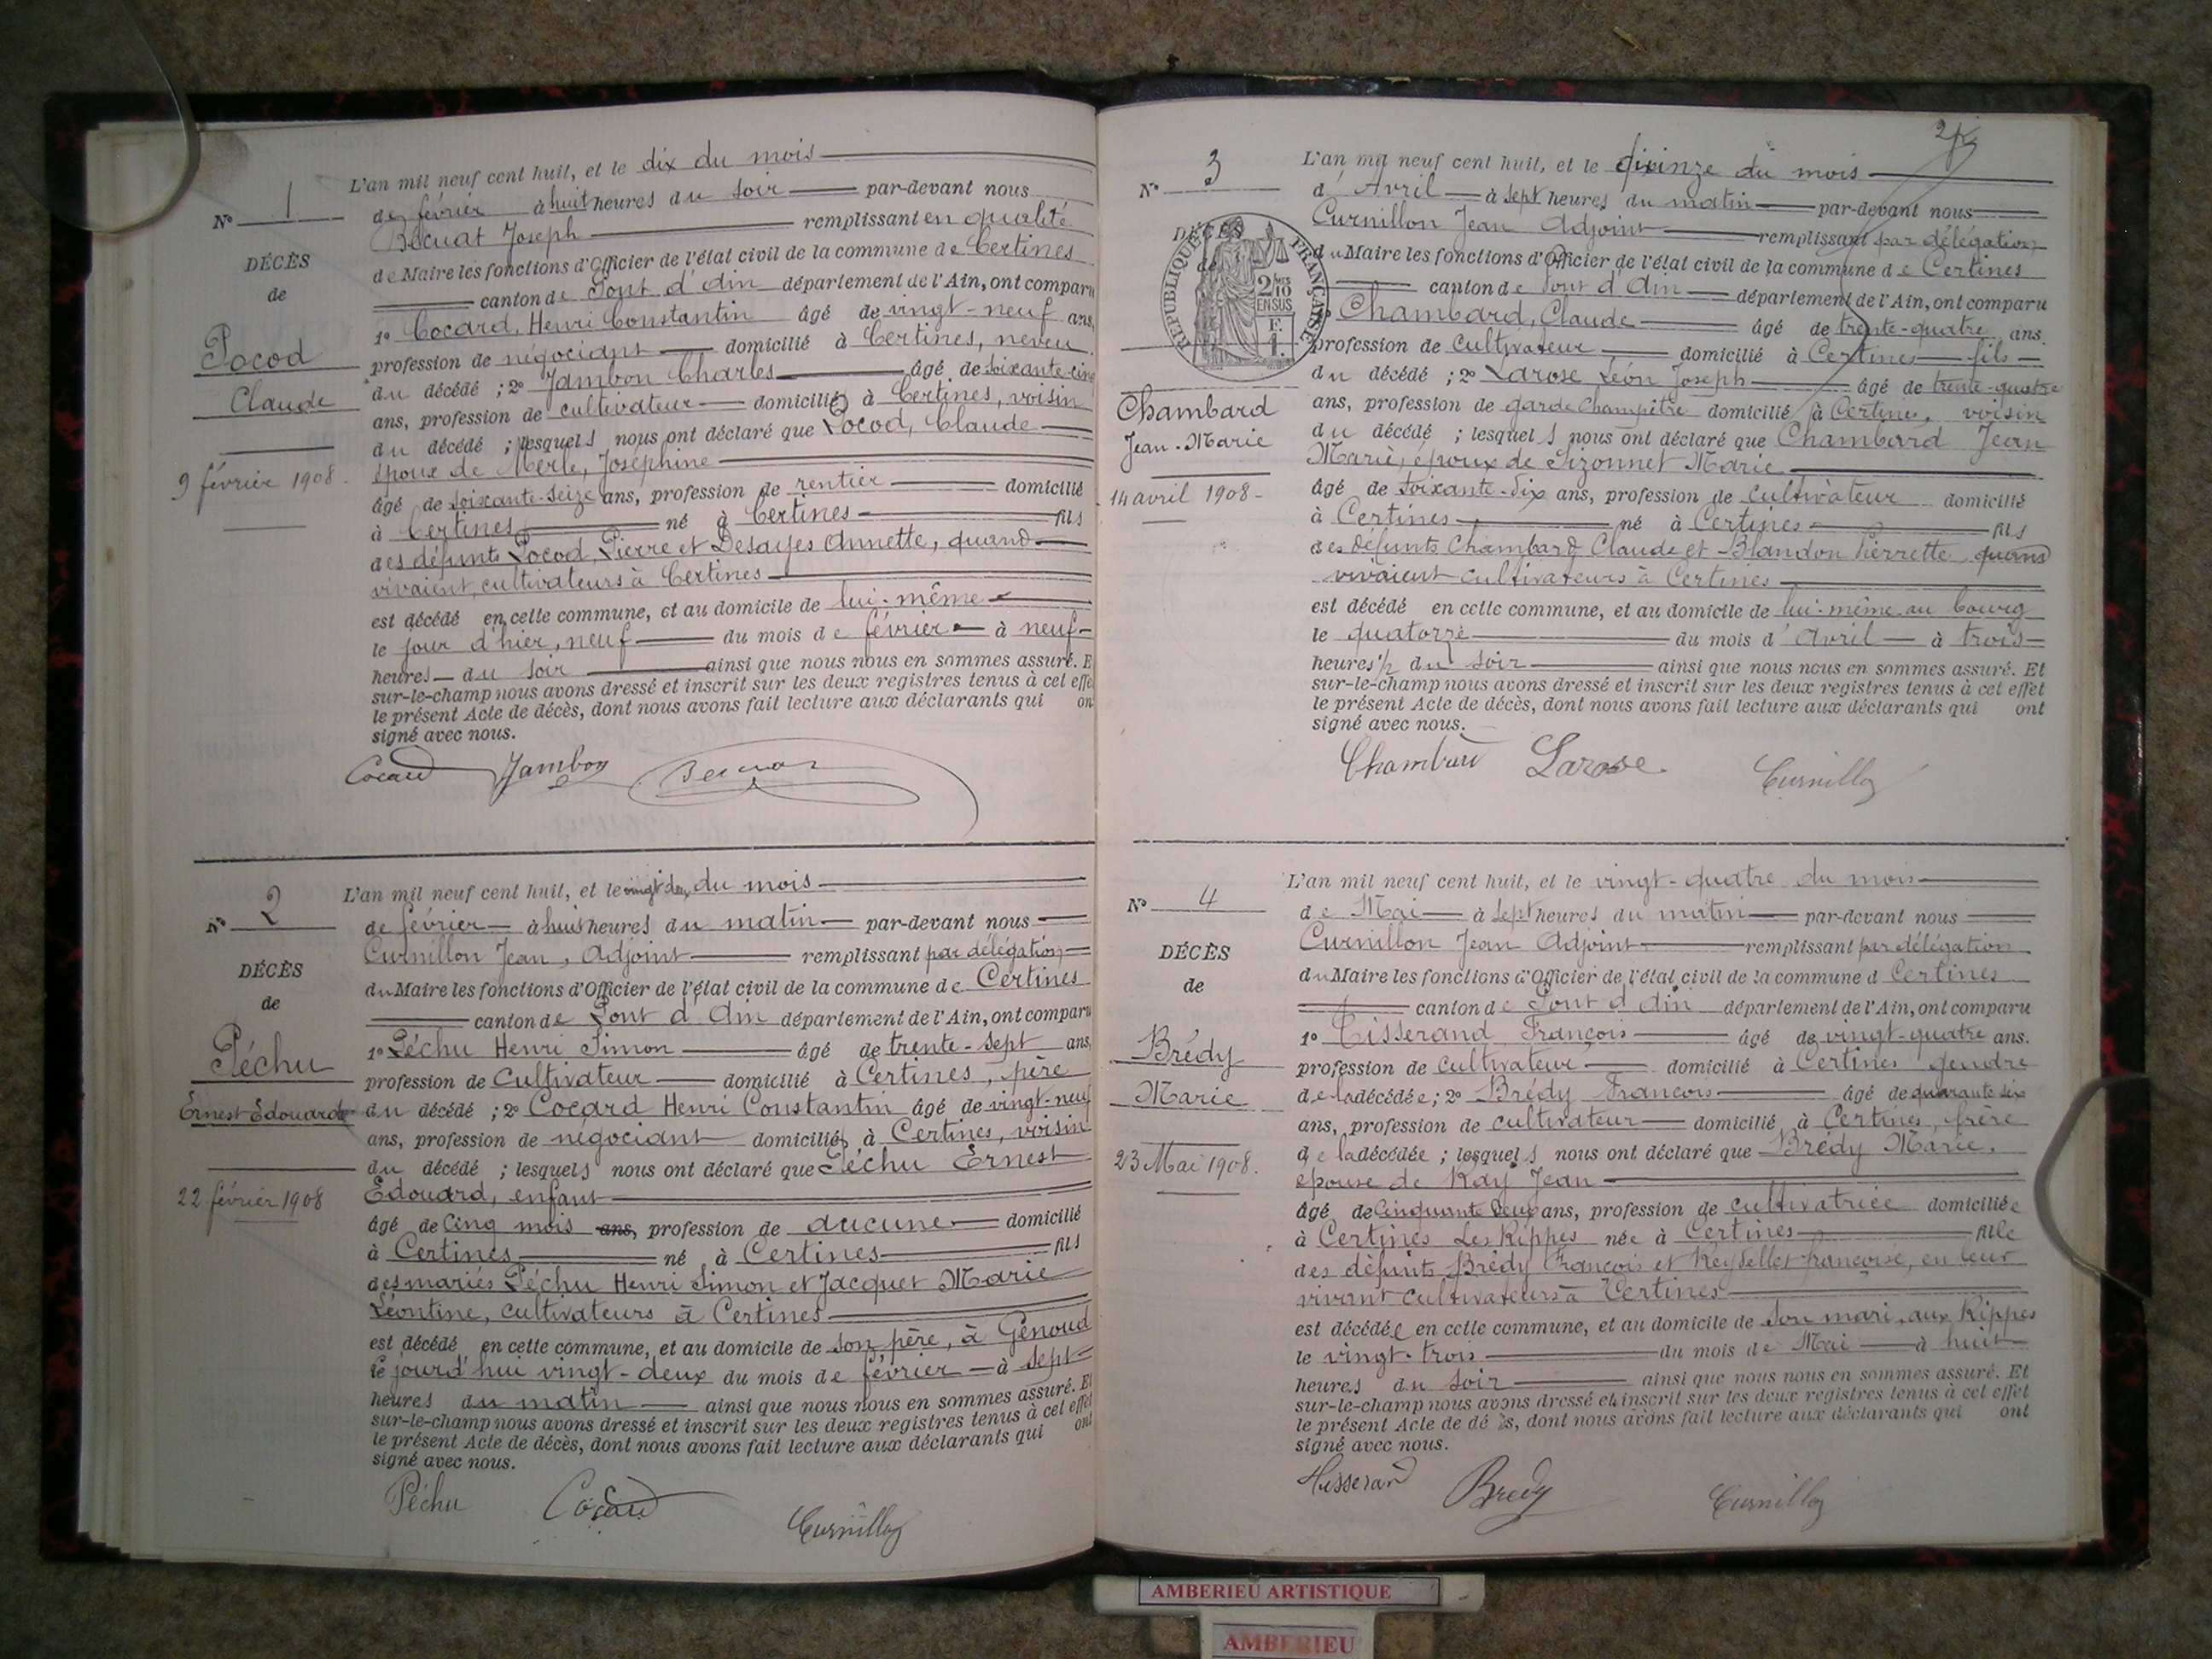 L'an mil neuf cent huit, et le dix du mois
N° 1
de février à huit heures du soir par-devant nous
Bécuat Joseph remplissant en qualité
DÉCÈS
de Maire les fonctions d'Officier de l'état civil de la commune de Certines
de
canton de Pont d'Ain département de l'Ain, ont comparu
1° Cocard, Henri Constantin âgé de vingt-neuf ans,
Pocod
profession de négociant domicilié à Certines, neveu
du décédé ; 2° Jambon Charles âgé de soixante-cinq
Claude
ans, profession de cultivateur domicilié à Certines, voisin
du décédé ; lesquels nous ont déclaré que Pocod, Claude
époux de Merle, Joséphine
9 février 1908.
âgé de soixante-seize ans, profession de rentier domicilié
à Certines né à Certines fils
des défunts Pocod, Pierre et Desayes Annette, quand
vivaient, cultivateurs à Certines
est décédé en cette commune, et au domicile de lui-même
le jour d'hier, neuf du mois de février à neuf
heures du soir ainsi que nous nous en sommes assuré. E
sur-le-champ nous avons dressé et inscrit sur les deux registres tenus à cet effe
le présent Acte de décès, dont nous avons fait lecture aux déclarants qui on
signé avec nous.
Cocard Jambon Becuat
L'an mil neuf cent huit, et le vingt deux du mois
N° 2
de février à huit heures du matin par-devant nous
Curnillon Jean, Adjoint remplissant par délégation
DÉCÈS
du Maire les fonctions d'Officier de l'état civil de la commune de Certines
de
canton de Pont d'Ain département de l'Ain, ont comparu
1° Péchu Henri Simon âgé de trente-sept ans,
Péchu
profession de Cultivateur domicilié à Certines, père
Ernest Edouard
du décédé ; 2° Cocard Henri Constantin âgé de vingt-neuf
ans, profession de négociant domiciliés à Certines, voisin
du décédé ; lesquels nous ont déclaré que Péchu Ernest
22 février 1908
Edouard, enfant
âgé de Cinq mois ans, profession de aucune domicilié
à Certines né à Certines fils
des mariés Péchu Henri Simon et Jacquet Marie
Léontine, cultivateurs à Certines
est décédé en cette commune, et au domicile de son père, à Genoud
le jourd'hui vingt-deux du mois de février à sept
heures du matin ainsi que nous nous en sommes assuré. Et
sur-le-champ nous avons dressé et inscrit sur les deux registres tenus à cet effet
le présent Acte de décès, dont nous avons fait lecture aux déclarants qui ont
signé avec nous.
Péchu Cocard Curnillon
L'an mil neuf cent huit, et le quinze du mois
N° 3
d'Avril à sept heures du matin par-devant nous
Curnillon Jean Adjoint remplissant par délégation
DÉCÈS
du Maire les fonctions d'Officier de l'état civil de la commune de Certines
de
RÉPUBLIQUE FRANÇAISE
2/10 EN SUS
canton de Pont d'Ain département de l'Ain, ont comparu
Chambard, Claude âgé de trente-quatre ans.
profession de cultivateur domicilié à Certines fils
du décédé ; 2° Larose Léon Joseph âgé de trente-quatre
Chambard
ans, profession de garde Champêtre domicilié à Certines, voisin
Jean-Marie
du décédé ; lesquels nous ont déclaré que Chambard Jean
Marie, époux de Pizonnet Marie
14 avril 1908
âgé de soixante-dix ans, profession de cultivateur domicilié
à Certines né à Certines fils
des défunts Chambard Claude et Blandon Pierrette quand
vivaient cultivateurs à Certines
est décédé en cette commune, et au domicile de lui-même au bourg
le quatorze du mois d'Avril à trois
heures ½ du soir ainsi que nous nous en sommes assuré. Et
sur-le-champ nous avons dressé et inscrit sur les deux registres tenus à cet effet
le présent Acte de décès, dont nous avons fait lecture aux déclarants qui ont
signé avec nous.
Chambard Larose Curnillon
L'an mil neuf cent huit, et le vingt-quatre du mois
N° 4
de Mai à sept heures du matin par-devant nous
Curnillon Jean Adjoint remplissant par délégation
DÉCÈS
du Maire les fonctions d'Officier de l'état civil de la commune d Certines
de
canton de Pont d'Ain département de l'Ain, ont comparu
1° Tisserand François âgé de vingt-quatre ans.
Brédy
profession de cultivateur domicilié à Certines gendre
Marie
de la décédée ; 2° Brédy François âgé de quarante six
ans, profession de cultivateur domicilié à Certines, frère
de la décédée ; lesquels nous ont déclaré que Brédy Marie,
23 Mai 1908.
épouse de Ray Jean
âgé de Cinquante deux ans, profession de cultivatrice domiciliée
à Certines Les Rippes née à Certines fille
des défunts Brédy François et Reydellet françoise, en leur
vivant cultivateurs à Certines
est décédée en cette commune, et au domicile de son mari, aux Rippes
le vingt-trois du mois de Mai à huit
heures du soir ainsi que nous nous en sommes assuré. Et
sur-le-champ nous avons dressé et inscrit sur les deux registres tenus à cet effet
le présent Acte de dé ès, dont nous avons fait lecture aux déclarants qui ont
signé avec nous.
Tisserand Bredy Curnillon
AMBERIEU ARTISTIQUE
AMBERIEU